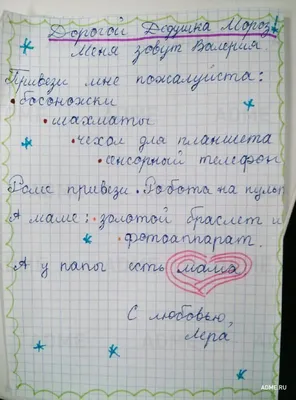 Дорогой Дедушка Мороз!
Меня зовут Валерия
Привези мне пожалуйста:
• босоножки
• шахматы
• чехол для планшета
• сенсорный телефон
Роме привези • Робота на пульт
А маме: • золотой браслет и
• фотоаппарат.
А у папы есть мама
С любовью,
Лера
ADME.RU